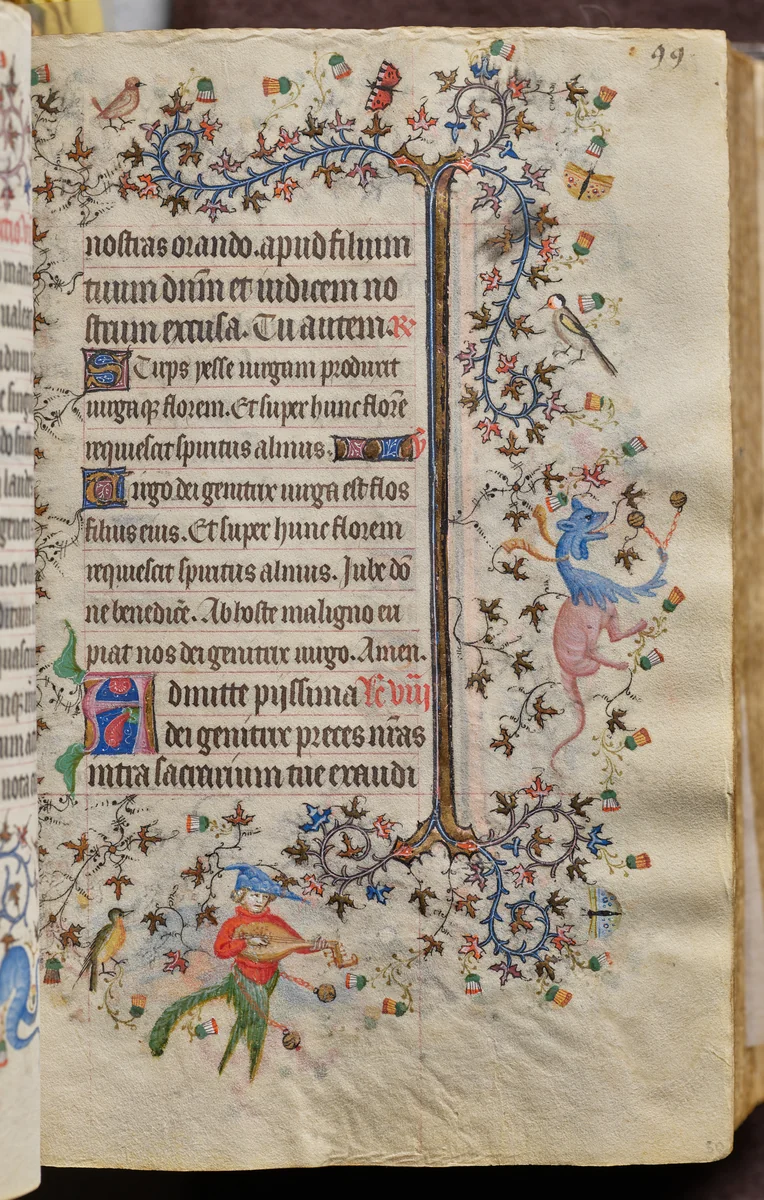 99
nostras orando. apud filium
tuum dnm et iudicem no
strum excusa. Tu autem. R
Stirps yesse uirgam produxit
uirgaqz florem. Et super hunc flore
requiescit spiritus almus. V
Virgo dei genitrix uirga est flos
filius eius. Et super hunc florem
requiescit spiritus almus. Jube do
ne benedice. Ab hoste maligno eri
piat nos dei genitrix uirgo. Amen.
Admitte pijssima Le viij
dei genitrix preces nras
intra sacrarium tue exaudi